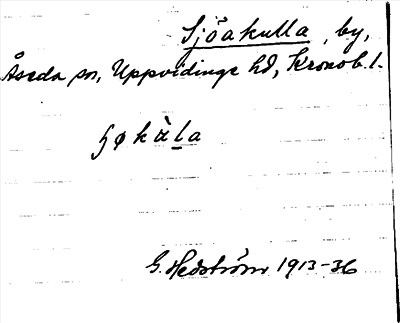 Sjöakulla, by,
Åseda sn, Uppvidinge hd, Kronob. l.
ɧøkàla
G. Hedström 1913-36